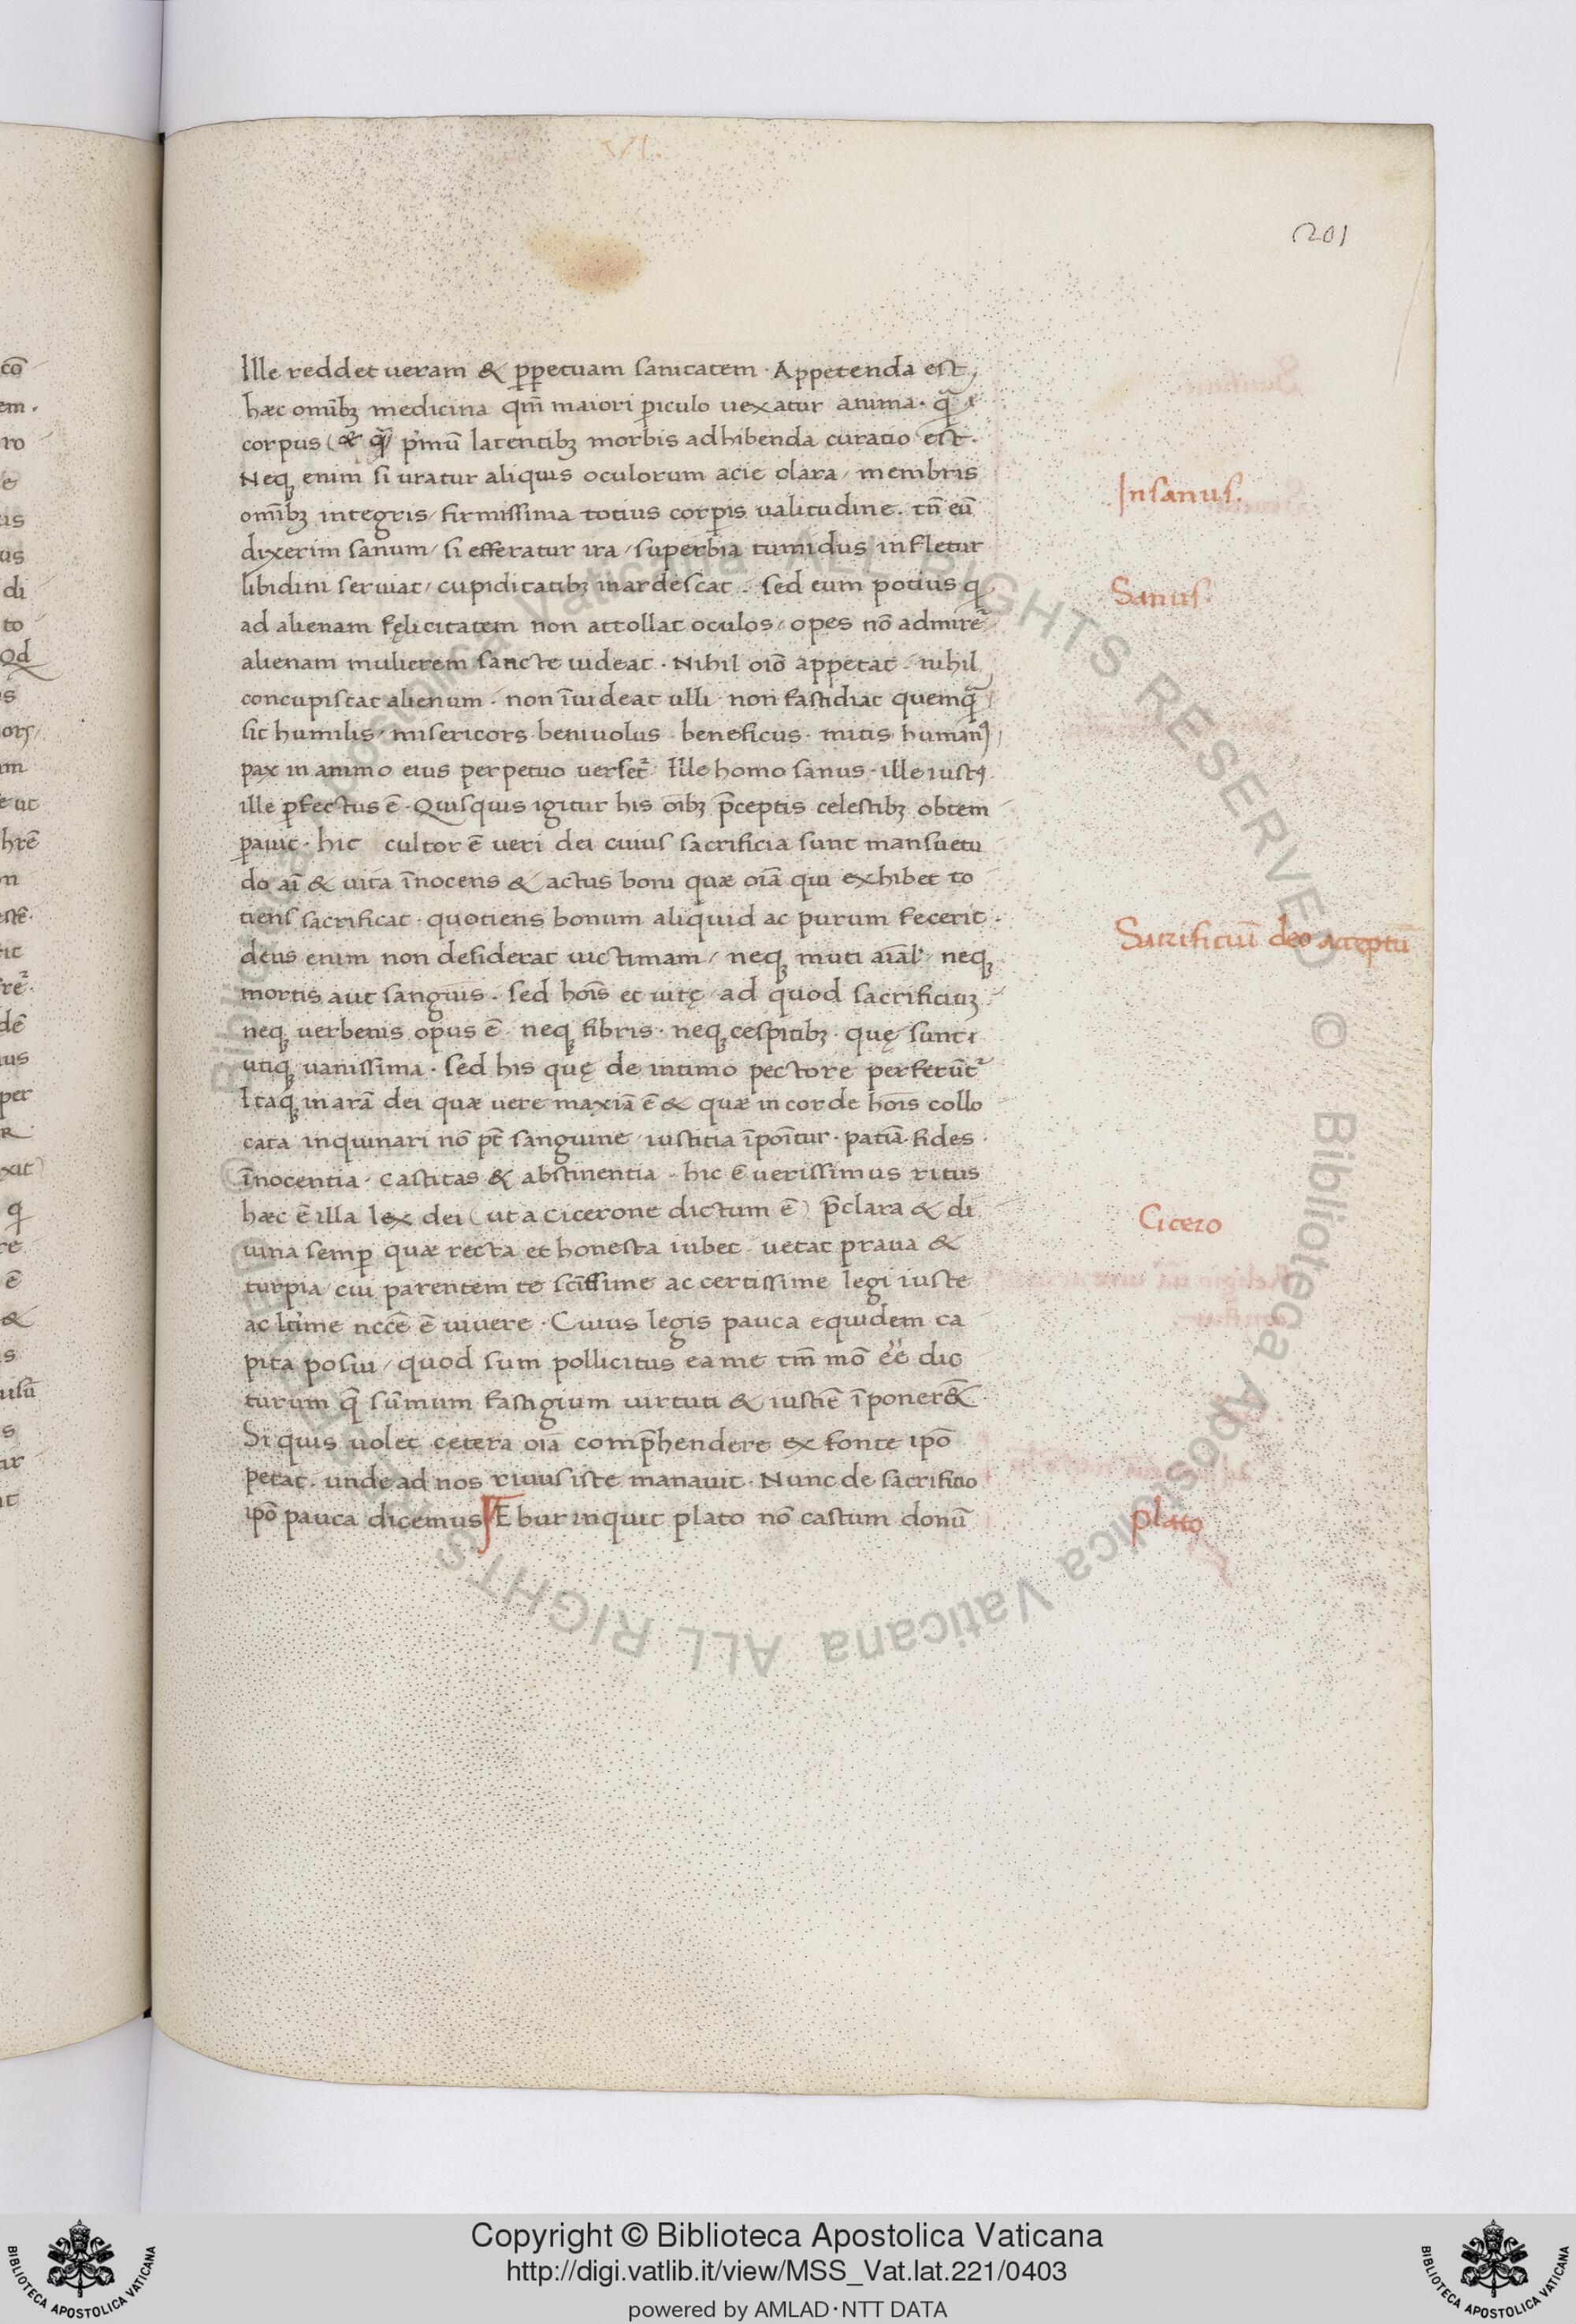 VI.
201
Ille reddet ueram & ꝑpetuam sanitatem · Appetenda est,
hæc omībꝫ medicina qm̄ maiori ꝑiculo uexatur anima · q̄
corpus (& q̄) pͥmū latentibꝫ morbis adhibenda curatio est ·
Neqꝫ enim si uratur aliquis oculorum acie clara / membris
omībꝫ integris / firmissima totius corꝑis ualitudine · tn̄ eū
dixerim sanum / si efferatur ira / superbia tumidus infletur
libidini seruiat / cupiditatibꝫ inardescat · sed eum potius q
ad alienam fęlicitatem non attollat oculos / opes nō admiret᷑
alienam mulierem sancte uideat · Nihil oīo appetat · nihil
concupiscat alienum · non īuideat ulli · non fastidiat quemq̄
sit humilis / misericors beniuolus · beneficus · mitis humanꝰ
pax in animo eius perpetuo uerset᷑ Ille homo sanus · ille iustꝰ
ille ꝑfectus ē · Quisquis igitur his oībꝫ p̄ceptis celestibꝫ obtem
ꝑauit · hic cultor ē ueri dei cuius sacrificia sunt mansuetu
do aī & uita īnocens & actus boni quæ oīa qui exhibet to
tiens sacrificat · quotiens bonum aliquid ac purum fecerit ·
deus enim non desiderat uictimam / neqꝫ muti aīal' / neqꝫ
mortis aut sanguis · sed hoīs et uitę / ad quod sacrificiuꝫ
neqꝫ uerbenis opus ē · neqꝫ fibris · neqꝫ cespitibꝫ · quę sunt
utiqꝫ uanissima · sed his quę de intimo pectore perferūt᷑
Itaqꝫ in arā dei quæ uere maxīa ē & quæ in corde hoīs collo
cata inquinari nō pt̄ sanguine / iustitia īpoītur · patīa · fides ·
īnocentia · castitas & abstinentia · hic ē uerissimus ritus
hæc ē illa lex dei (ut a cicerone dictum ē) p̄clara & di
uina semꝑ quæ recta et honesta iubet · uetat praua &
turpia / cui parentem te sc̄issime ac certissime legi iuste
ac ltīme nccē ē uiuere · Cuius legis pauca equidem ca
pita posui / quod sum pollicitus ea me tm̄ mō eē dic
turum q̄ sūmum fastigium uirtuti & iustiē īponer&
Si quis uolet cetera oīa comp̄hendere ex fonte ipō
petat · unde ad nos riuus iste manauit · Nunc de sacrificio
ipō pauca dicemus Ebur inquit plato nō castum donū
Insanus.
Sanus.
Sacrificiū deo acceptū
Cicero
plato
Copyright © Biblioteca Apostolica Vaticana
http://digi.vatlib.it/view/MSS_Vat.lat.221/0403
powered by AMLAD·NTT DATA
BIBLIOTECA APOSTOLICA VATICANA
BIBLIOTECA APOSTOLICA VATICANA